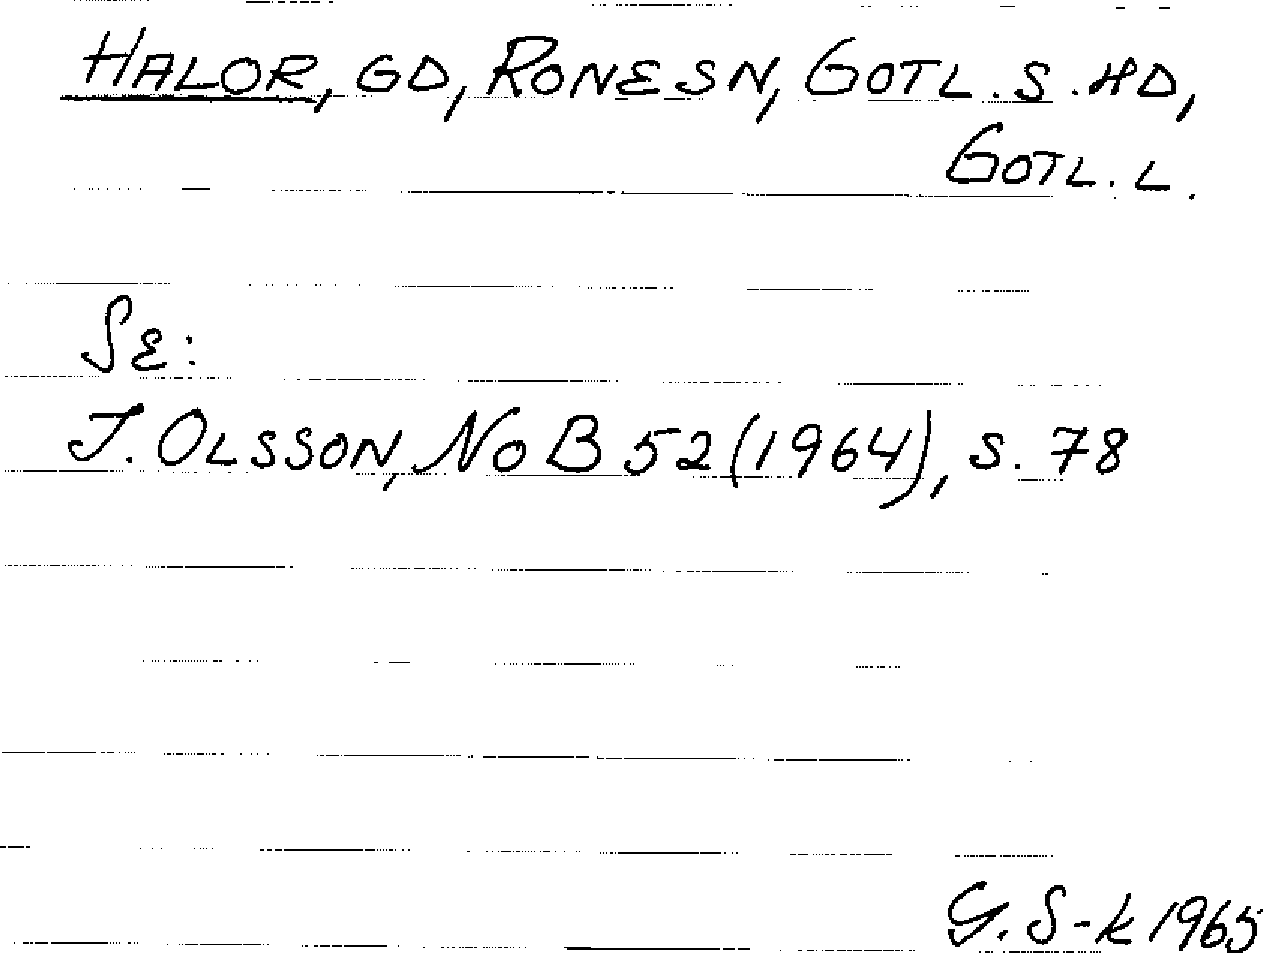 HALOR, GD, RONE SN, GOTL. S. HD,
GOTL. L.
SE:
J. OLSSON, NoB 52 (1964), S. 78
G. S-k 1965